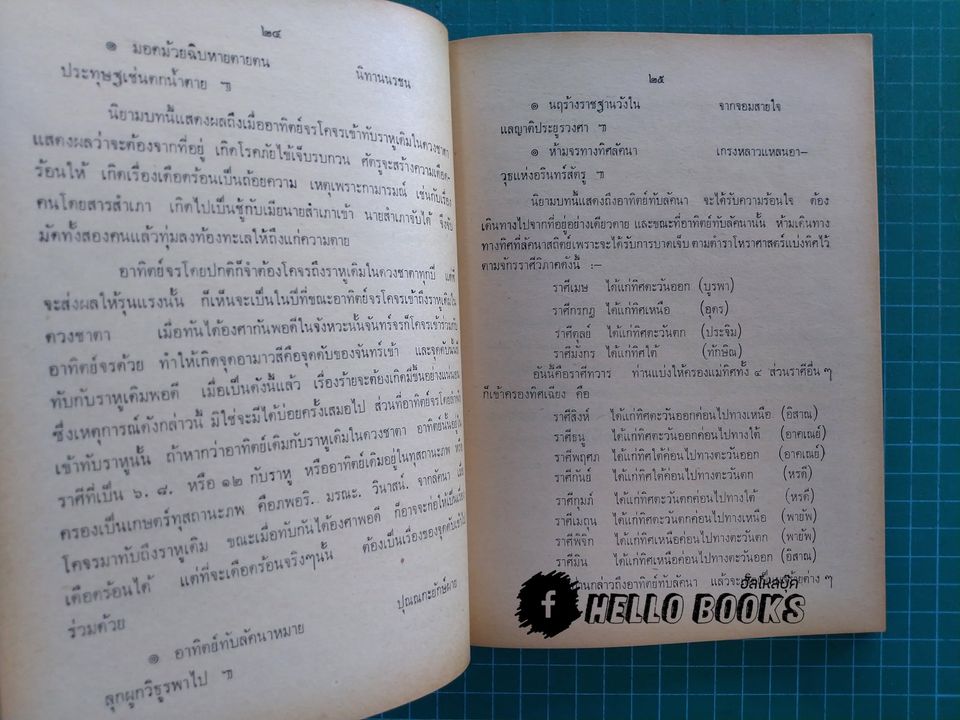 ๒๔
๏ มอดม้วยฉิบหายตายตน นิทานนรชน
ประทุษฐเช่นตกน้ำตาย ๚
นิยามบทนี้แสดงผลถึงเมื่ออาทิตย์จรโคจรเข้าทับราหูเดิมในดวงชาตา
แสดงผลว่าจะต้องจากที่อยู่ เกิดโรคภัยไข้เจ็บรบกวน ศัตรูจะสร้างความเดือด-
ร้อนให้ เกิดเรื่องเดือดร้อนเป็นถ้อยความ เหตุเพราะกามารมณ์ เช่นกับเรื่อง
คนโดยสารสำเภา เกิดไปเป็นชู้กับเมียนายสำเภาเข้า นายสำเภาจับได้ จึงจับ
มัดทั้งสองคนแล้วทุ่มลงท้องทะเลให้ถึงแก่ความตาย
อาทิตย์จรโดยปกติก็จำต้องโคจรถึงราหูเดิมในดวงชาตาทุกปี แต่ที่
จะส่งผลให้รุนแรงนั้น ก็เห็นจะเป็นในปีที่ขณะอาทิตย์จรโคจรเข้าถึงราหูเดิมใน
ดวงชาตา เมื่อทันได้องศากันพอดีในจังหวะนั้นจันทร์จรก็โคจรเข้าร่วมกับ
อาทิตย์จรด้วย ทำให้เกิดจุดอามาวสีคือจุดดับของจันทร์เข้า และจุดดับนั้น
ทับกับราหูเดิมพอดี เมื่อเป็นดังนี้แล้ว เรื่องร้ายจะต้องเกิดมีขึ้นอย่างแน่นอน
ซึ่งเหตุการณ์ดังกล่าวนี้ มิใช่จะมีได้บ่อยครั้งเสมอไป ส่วนที่อาทิตย์จรโดยลำพัง
เข้าทับราหูนั้น ถ้าหากว่าอาทิตย์เดิมกับราหูเดิมในดวงชาตา อาทิตย์นั้นอยู่ใน
ราศีที่เป็น ๖. ๘. หรือ ๑๒ กับราหู หรืออาทิตย์เดิมอยู่ในทุสถานะภพ หรือ
ครองเป็นเกษตร์ทุสถานะภพ คือภพอริ. มรณะ. วินาสน์. จากลัคนา เมื่อ
โคจรมาทับถึงราหูเดิม ขณะเมื่อทับกันได้องศาพอดี ก็อาจจะก่อให้เป็น
เดือดร้อนได้ แต่ที่จะเดือดร้อนจริงๆนั้น ต้องเป็นเรื่องของจุดดับ
ร่วมด้วย
๏ อาทิตย์ทับลัคนาหมาย ปุณณกะยักษ์ผาย
ลุกผูกวิธูรพาไป ๚
๒๕
๏ นฤร้างราชฐานวังใน จากจอมสายใจ
แลญาติประยูรวงศา ๚
๏ ห้ามจรทางทิศลัคนา เกรงหลาวแหลนอา-
วุธแห่งอรินทร์สัตรู ๚
นิยามบทนี้แสดงถึงอาทิตย์ทับลัคนา จะได้รับความร้อนใจ ต้อง
เดินทางไปจากที่อยู่อย่างเดียวดาย และขณะที่อาทิตย์ทับลัคนานั้น ห้ามเดินทาง
ทางทิศที่ลัคนาสถิตย์เพราะจะได้รับการบาดเจ็บ ตามตำราโหราศาสตร์แบ่งทิศไว้
ตามจักรราศีวิภาคดังนี้ :—
ราศีเมษ ได้แก่ทิศตะวันออก (บูรพา)
ราศีกรกฎ ได้แก่ทิศเหนือ (อุดร)
ราศีตุลย์ ได้แก่ทิศตะวันตก (ประจิม)
ราศีมังกร ได้แก่ทิศใต้ (ทักษิณ)
อันนี้คือราศีทวาร ท่านแบ่งให้ครองแม่ทิศทั้ง ๔ ส่วนราศีอื่น ๆ
ก็เข้าครองทิศเฉียง คือ
ราศีสิงห์ ได้แก่ทิศตะวันออกค่อนไปทางเหนือ (อิสาณ)
ราศีธนู ได้แก่ทิศตะวันออกค่อนไปทางใต้ (อาคเณย์)
ราศีพฤศภ ได้แก่ทิศใต้ค่อนไปทางตะวันออก (อาคเณย์)
ราศีกันย์ ได้แก่ทิศใต้ค่อนไปทางตะวันตก (หรดี)
ราศีกุมภ์ ได้แก่ทิศตะวันตกค่อนไปทางใต้ (หรดี)
ราศีเมถุน ได้แก่ทิศตะวันตกค่อนไปทางเหนือ (พายัพ)
ราศีพิจิก ได้แก่ทิศเหนือค่อนไปทางตะวันตก (พายัพ)
ราศีมิน ได้แก่ทิศเหนือค่อนไปทางตะวันออก (อิสาณ)
กล่าวถึงอาทิตย์ทับลัคนา แล้วจะ ต่าง ๆ
ฮัลโหลบุ๊ค
f HELLO BOOKS